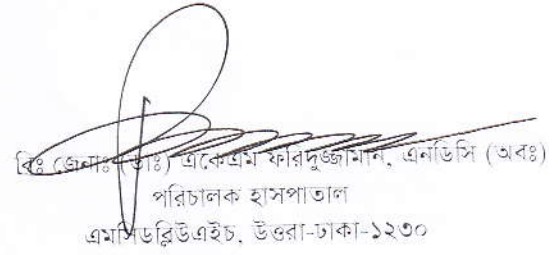 বিঃ জেনাঃ (ডাঃ) একেএম ফরিদুজ্জামান, এনডিসি (অবঃ)
পরিচালক হাসপাতাল
এমসিডব্লিউএইচ, উত্তরা-ঢাকা-১২৩০